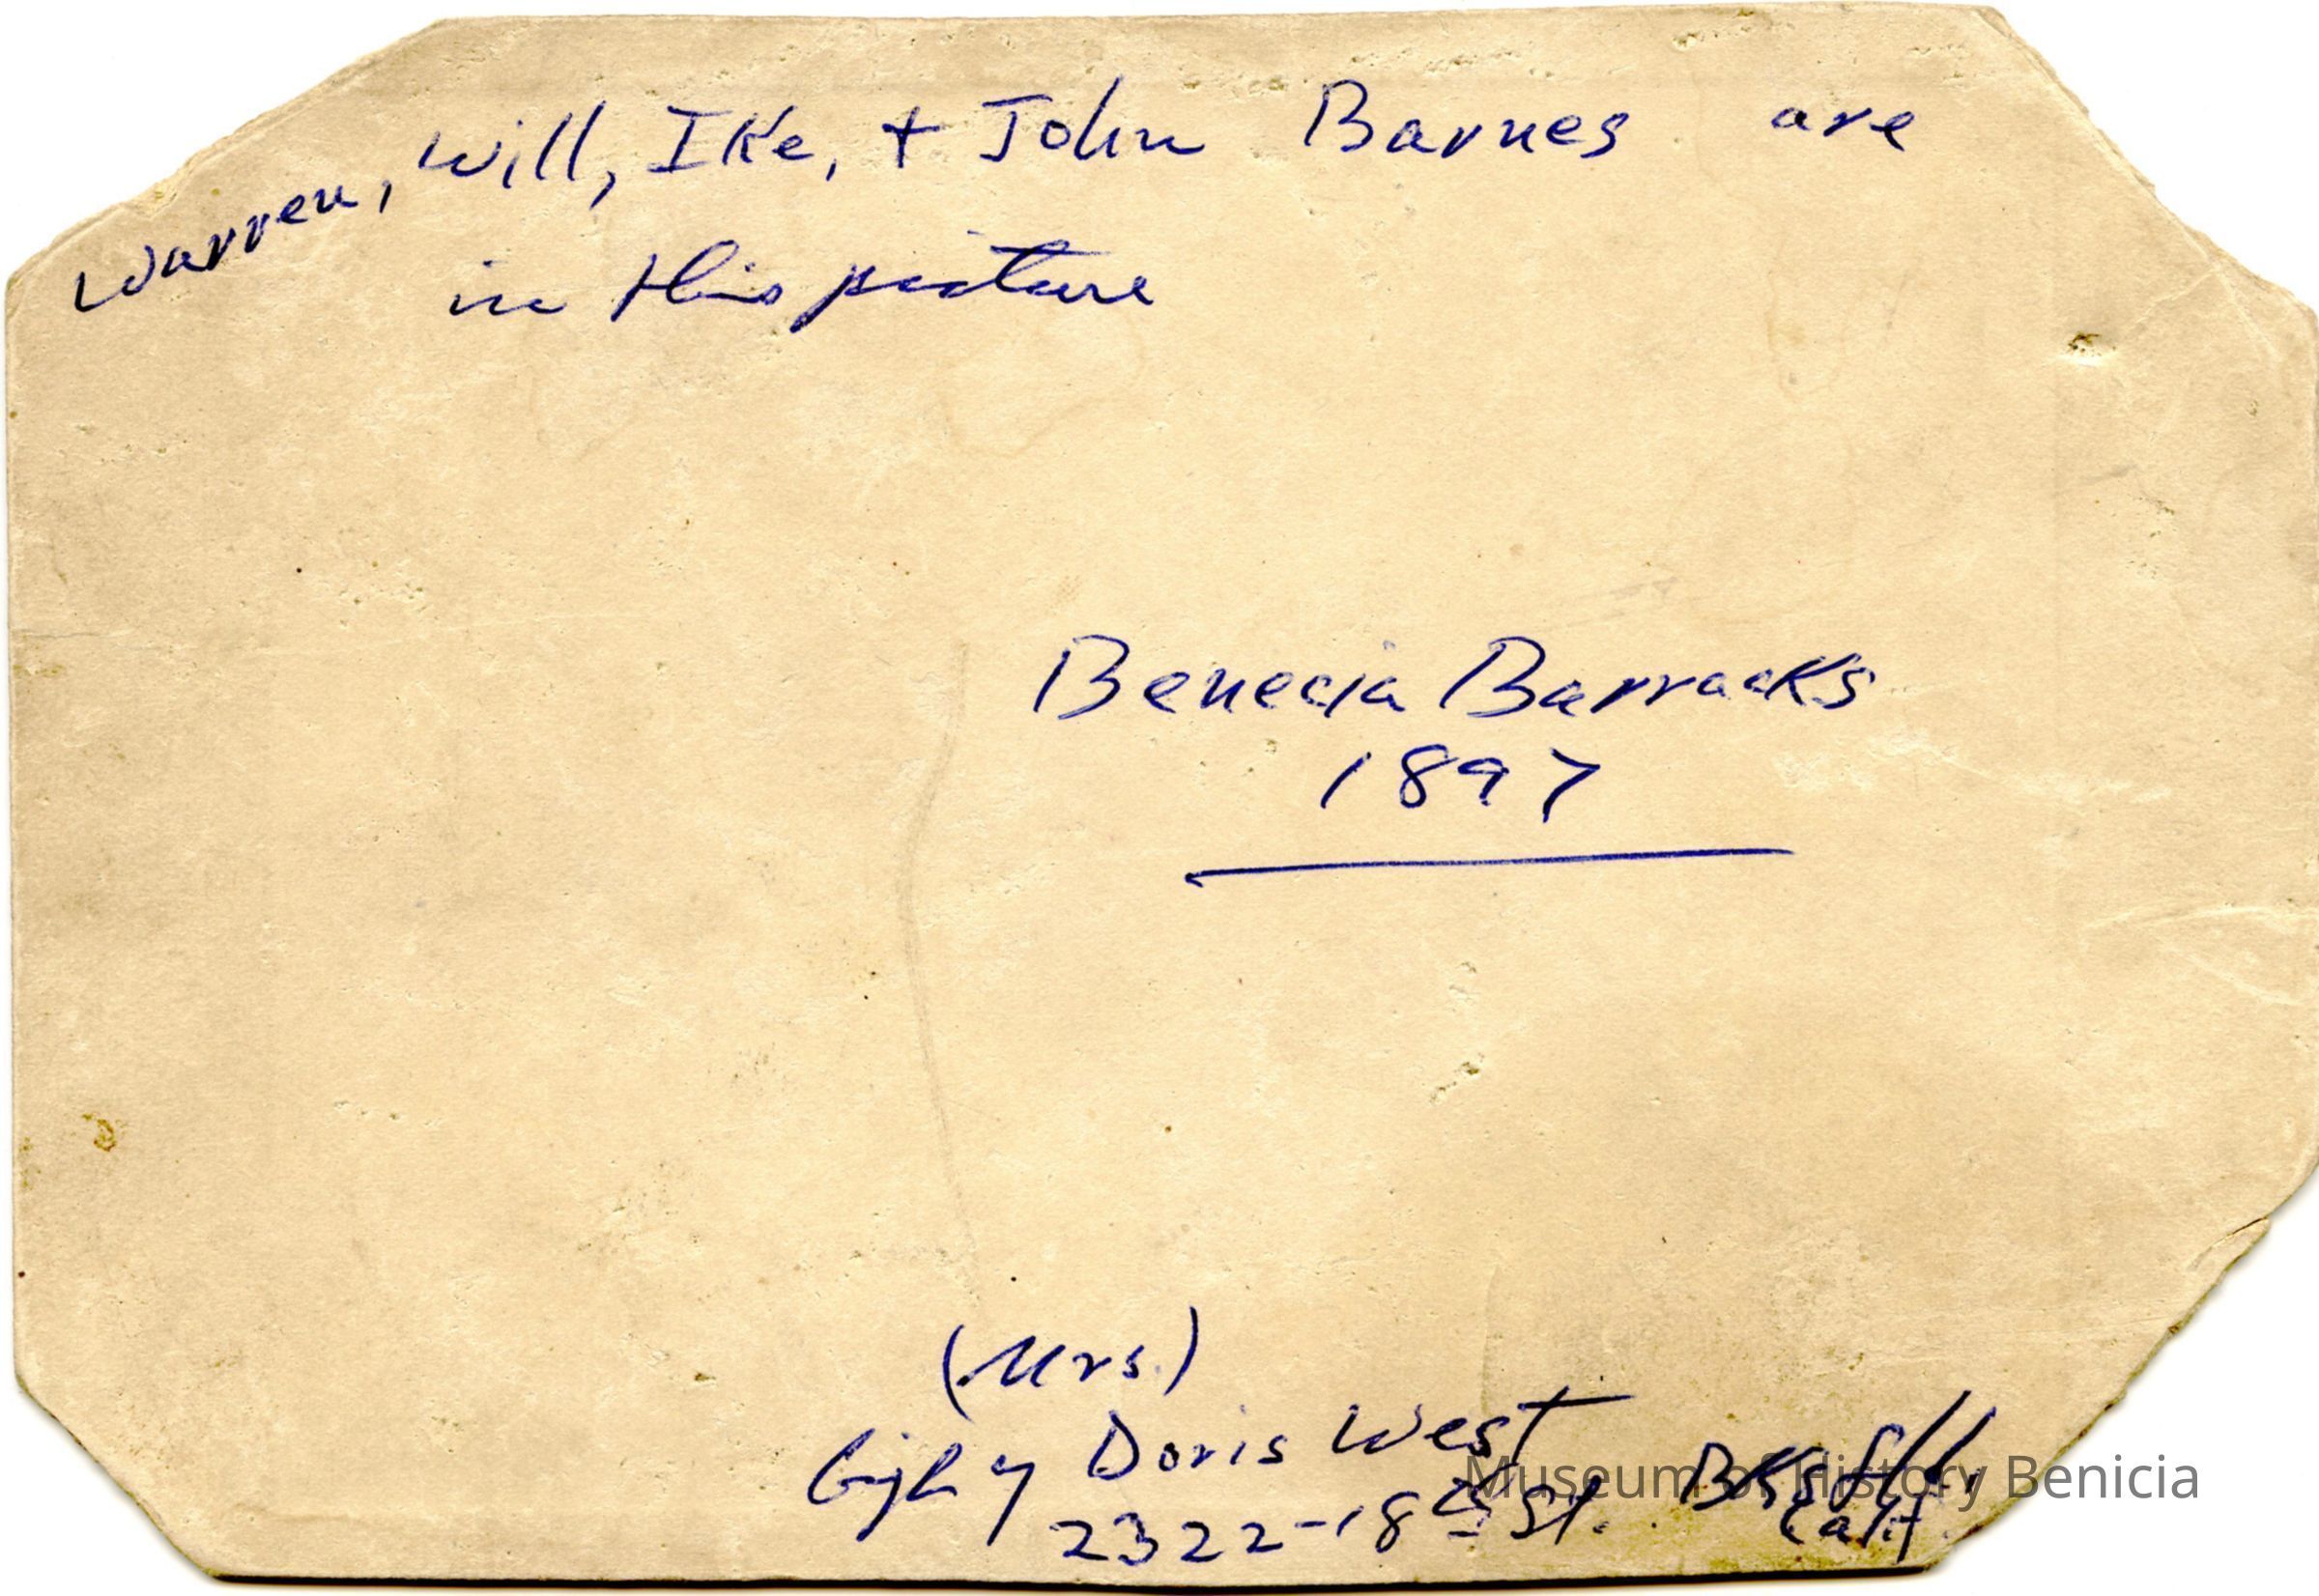 Warren, Will, Ike, + John Barnes are
in this picture
Benecia Barracks
1897
(Mrs.)
Doris West
2322-18th St. Bksfld,
Calif.
Museum of History Benicia